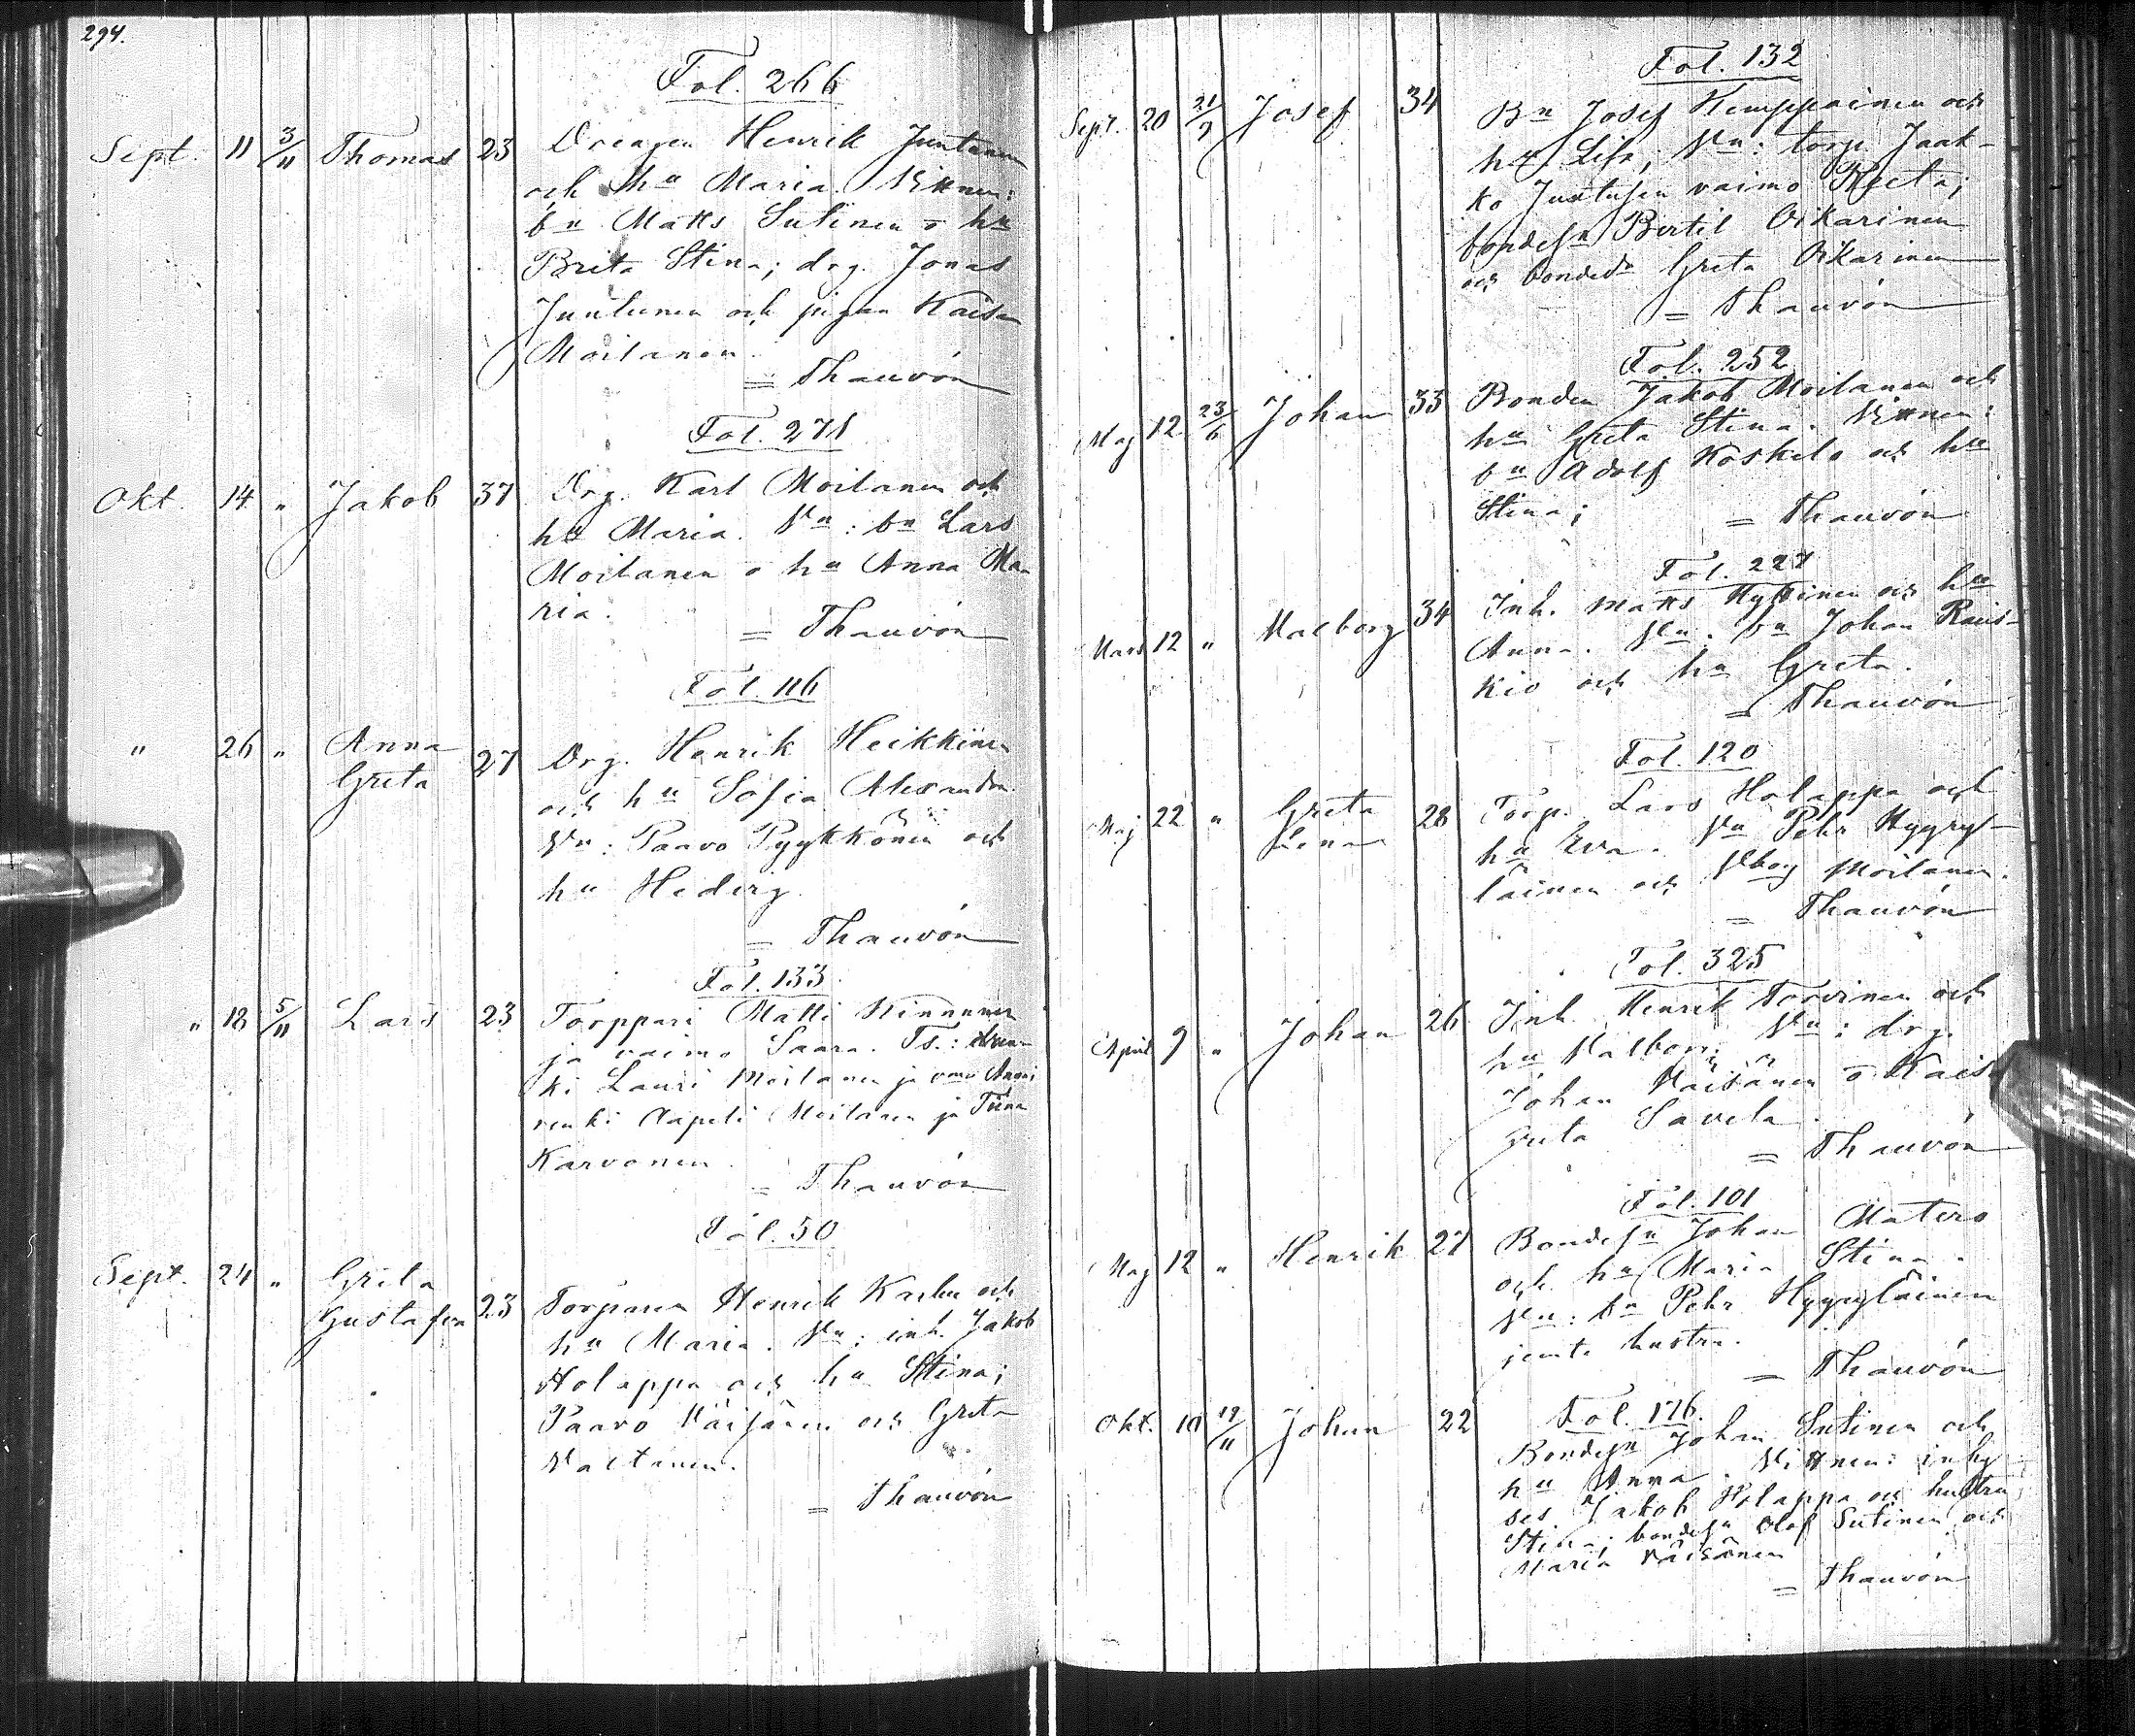 294.
Fol. 266
Sept. 11 3/11 Thomas 23 Drengen Henrik Juntunen
och hu Maria. Vittnen:
bn Matts Sutinen o hu
Brita Stina; drg. Jonas
Juntunen och pigan Kaisa
Moilanen.
= Thauvón
Fol. 271
Okt. 14 " Jakob 37 Drg. Karl Moilanen och
hu Maria. Vn: bn Lars
Moilanen o hu Anna Ma-
ria.
= Thauvón
Fol. 116
" 26 " Anna Greta 27 Drg. Henrik Heikkinen
och hu Sofia Alexandra.
Vn: Paavo Pyykkönen och
hu Hedvig.
= Thauvón
Fol. 133
" 18 5/11 Lars 23 Torppari Matti Kinnunen
ja vaimo Saara. Ts.:
ki Lauri Moilanen ja vmo Anni;
renki Aapeli Moilanen ja Tiina
Karvonen.
= Thauvón
Fol. 50
Sept. 24 " Greta Gustafva 23 Torparen Henrik Karhu och
hu Maria. Vn: inh. Jakob
Holappa och hu Stina;
Paavo Väisänen och Greta
= Thauvón
Fol. 132
Sept. 20 21/9 Josef 34 Bn Josef Kemppainen och
hu Lisa; Vn: torp. Jaak-
ko Juntusen vaimo Reeta;
bondesn Bertil Oikarinen
och bonded. Greta Oikarinen
= Thauvón
Fol. 252
Maj 12 23/6 Johan 33 Bonden Jakob Moilanen och
hu Greta Stina. Vittnen:
bn Adolf Koskelo och hu
Stina;
= Thauvón
Fol. 227
Mars 12 " Valborg 34 Inh. Matts Kyllinen och hu
Anna. Vn: bn Johan Rais-
kio och hu Greta.
= Thauvón
Fol. 120
Maj 22 " Greta Lena 28 Torp. Lars Holappa och
hu Eva. Vn Pehr Hyyry-
läinen och Vborg Moilanen.
= Thauvón
Fol. 325
April 9 " Johan 26 Inh. Henrik Torvinen och
hu Valborg; Vn: drg.
Johan Väisänen o Kaisa
Greta Savela.
= Thauvón
Fol. 101
Maj 12 " Henrik 27 Bondesn Johan Matero
och hu Maria Stina.
Vn: bn Pehr Hyyryläinen
jemte hustru.
= Thauvón
Fol. 176.
Okt. 10 19/11 Johan 22 Bondesn Johan Sutinen och
hu Anna. Vittnen: inhy-
ses. Jakob Holappa och hustru
Stina; bondesn Olof Sutinen och
Maria Väisänen
= Thauvón